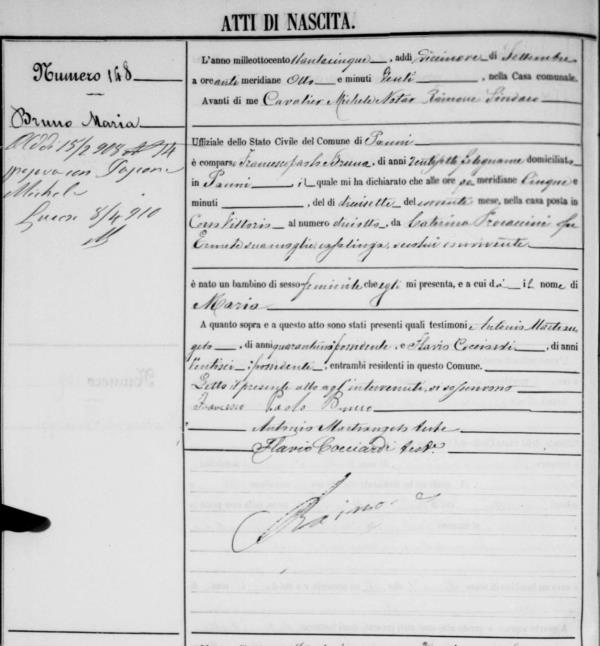 ATTI DI NASCITA.
Numero 148
Bruno Maria
Addì 15/2 908
sposava con
Michele
Lucera 8/4 910
L'anno milleottocento ttantacinque, addì dicinove di Settembre
a ore anti meridiane Otto e minuti Venti, nella Casa comunale.
Avanti di me Cavalier Michele Notar Raimone Sindaco
Uffiziale dello Stato Civile del Comune di Panni
è comparso Francesco Paolo Bruno, di anni ventisette falegname domiciliato
in Panni il quale mi ha dichiarato che alle ore meridiane Cinque e
minuti, del dì diciisette del corrente mese, nella casa posta in
Corso Vittorio al numero diciotto, da Caterina Procaccini fu
sua moglie, casalinga, seco lui convivente
è nato un bambino di sesso feminile che egli mi presenta, e a cui dà il nome di
Maria
A quanto sopra e a questo atto sono stati presenti quali testimoni Antonio Mastran
gelo, di anni quarantuno possidente, e Flavio Cocciardi, di anni
ventisei possidente, entrambi residenti in questo Comune.
Letto il presente atto agl'intervenuti, si sono
Francesco Paolo Bruno
Antonio Mastrangelo teste
Flavio Cocciardi teste
Raimo